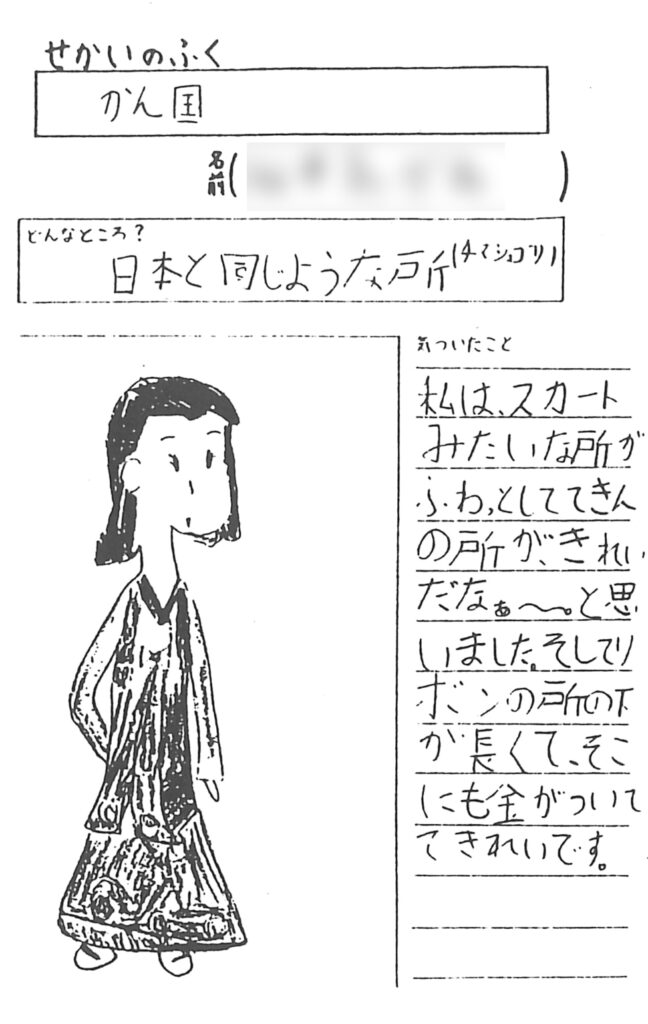 せかいのふく
かん国
名前( )
どんなところ?
日本と同じような戸所(チマシュゴリ)
気づいたこと
私は、スカート
みたいな所が
ふわっとしててきん
の所が、きれい
だなぁ〜。と思
いました。そしてリ
ボンの所の下
が長くて、そこ
にも金がついて
てきれいです。